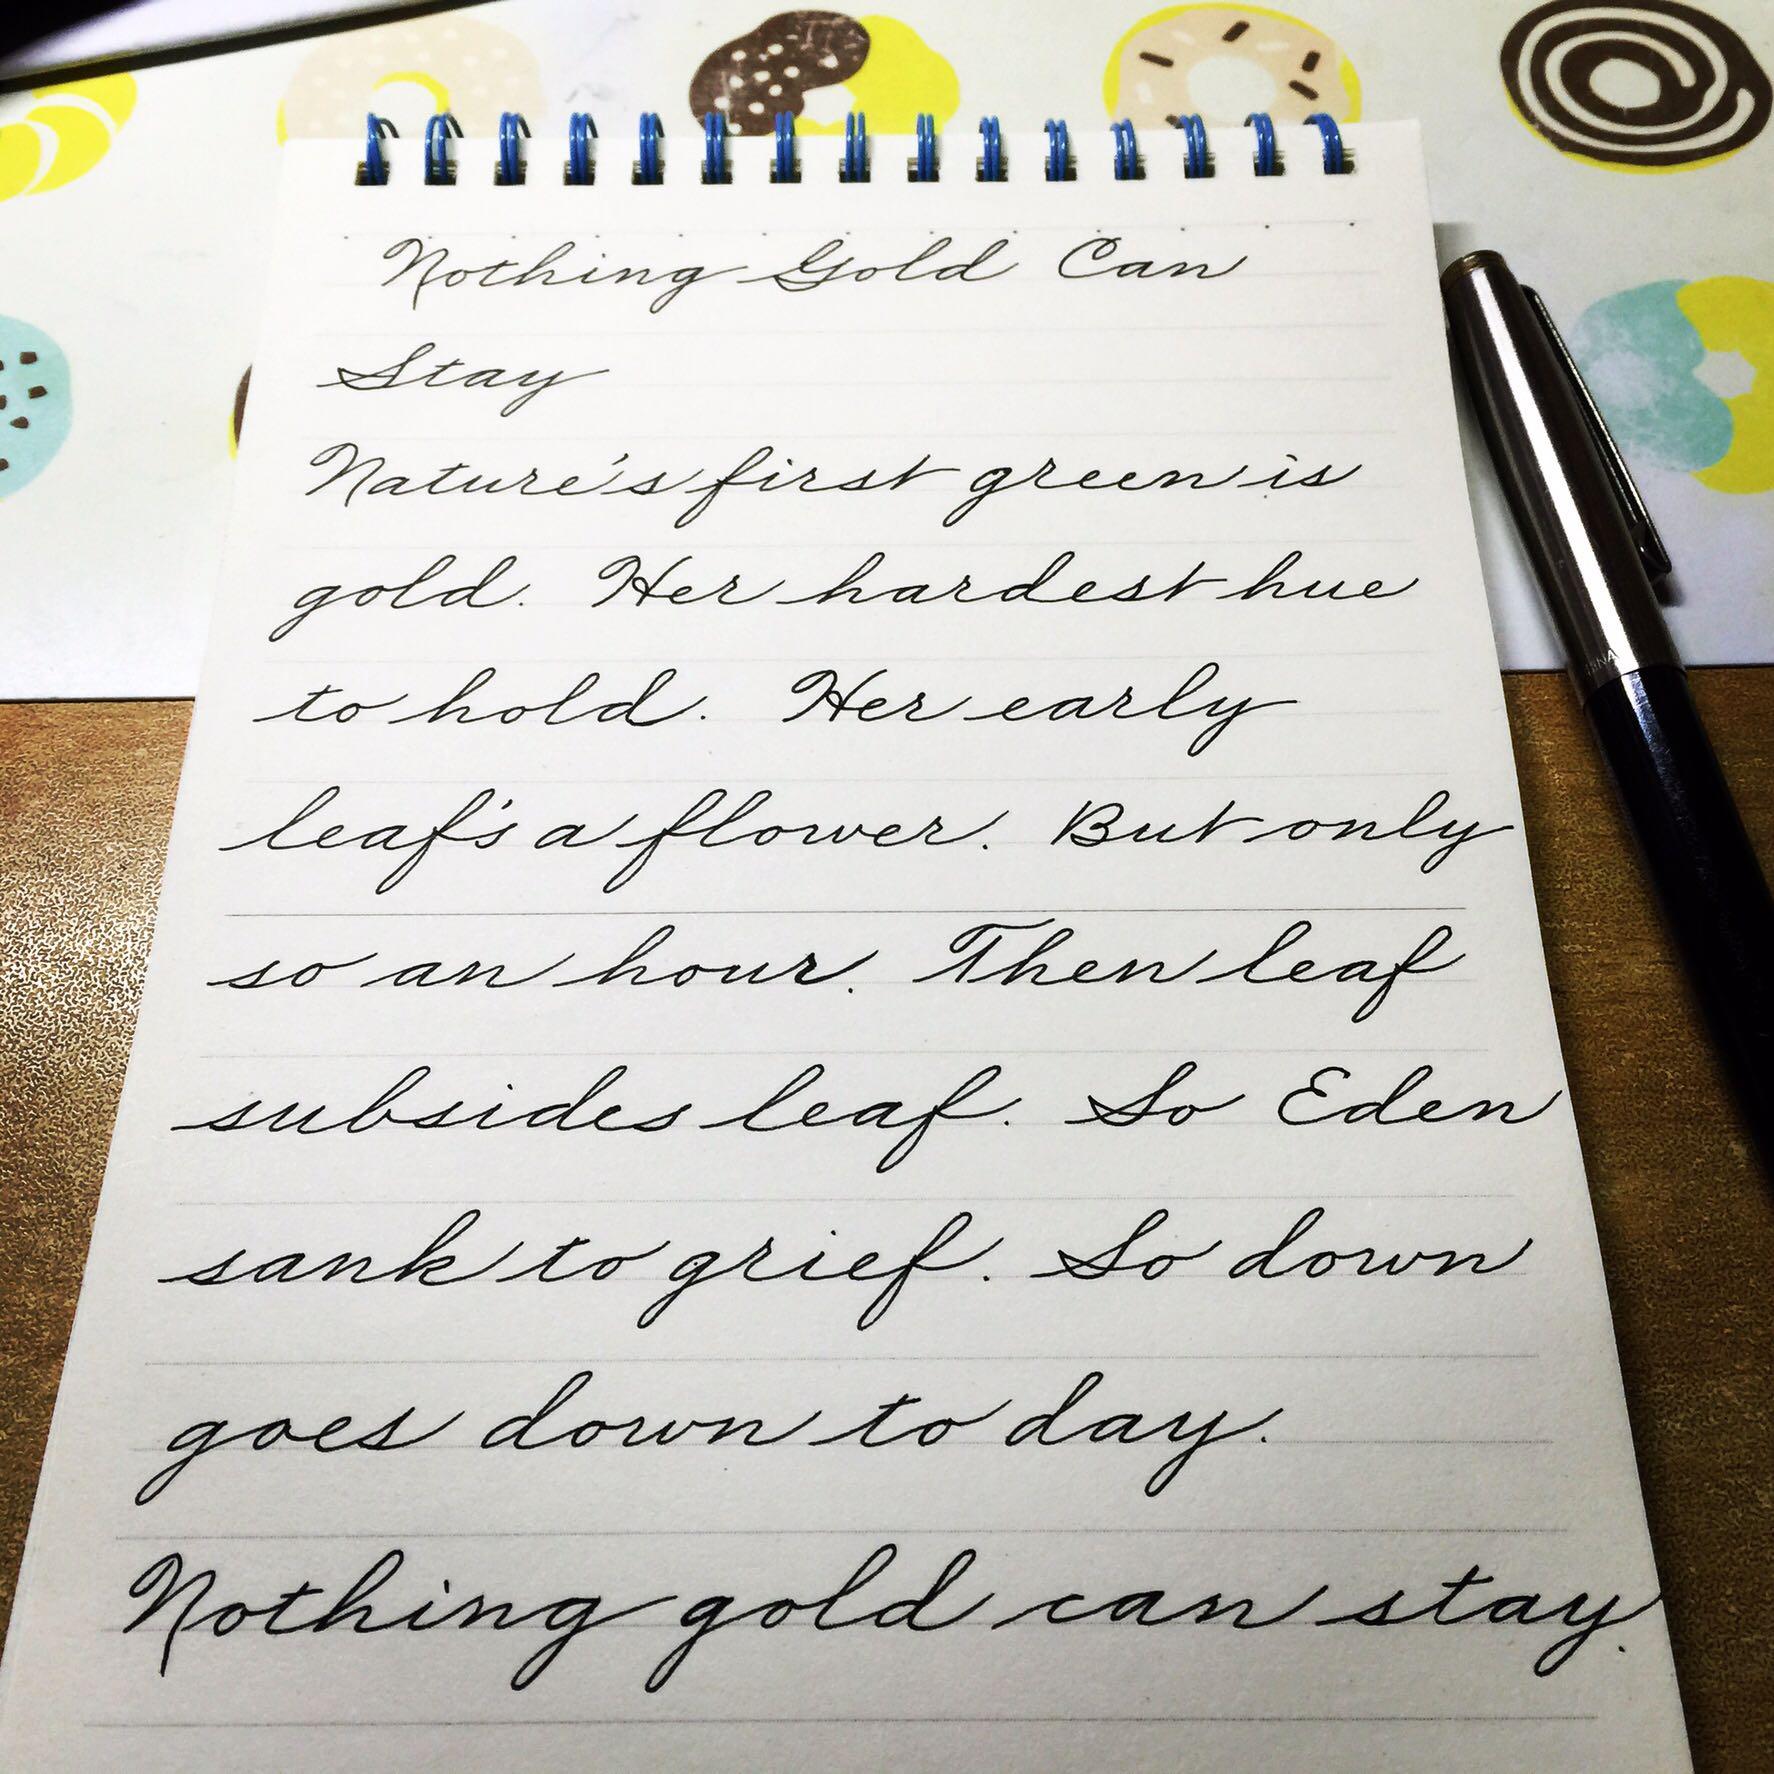 Nothing Gold Can
Stay
Nature's first green is
gold. Her hardest hue
to hold. Her early
leaf's a flower. But only
so an hour. Then leaf
subsides leaf. So Eden
sank to grief. So down
goes down to day.
Nothing gold can stay.